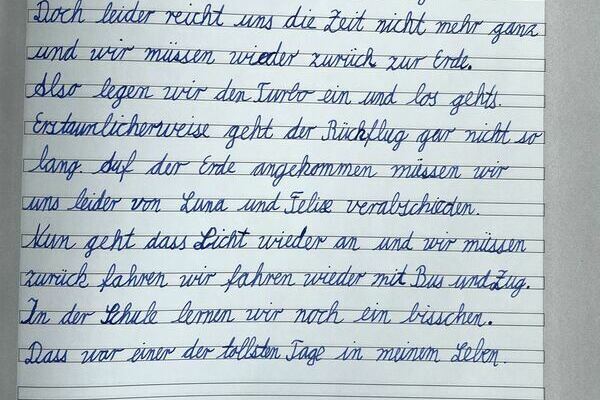 Doch leider reicht uns die Zeit nicht mehr ganz
und wir müssen wieder zurück zur Erde.
Also legen wir den Turbo ein und los gehts.
Erstaunlicherweise geht der Rückflug gar nicht so
lang. Auf der Erde angekommen müssen wir
uns leider von Luna und Felix verabschieden.
Nun geht dass Licht wieder an und wir müssen
zurück fahren wir fahren wieder mit Bus und Zug.
In der Schule lernen wir noch ein bisschen.
Dass war einer der tollsten Tage in meinem Leben.